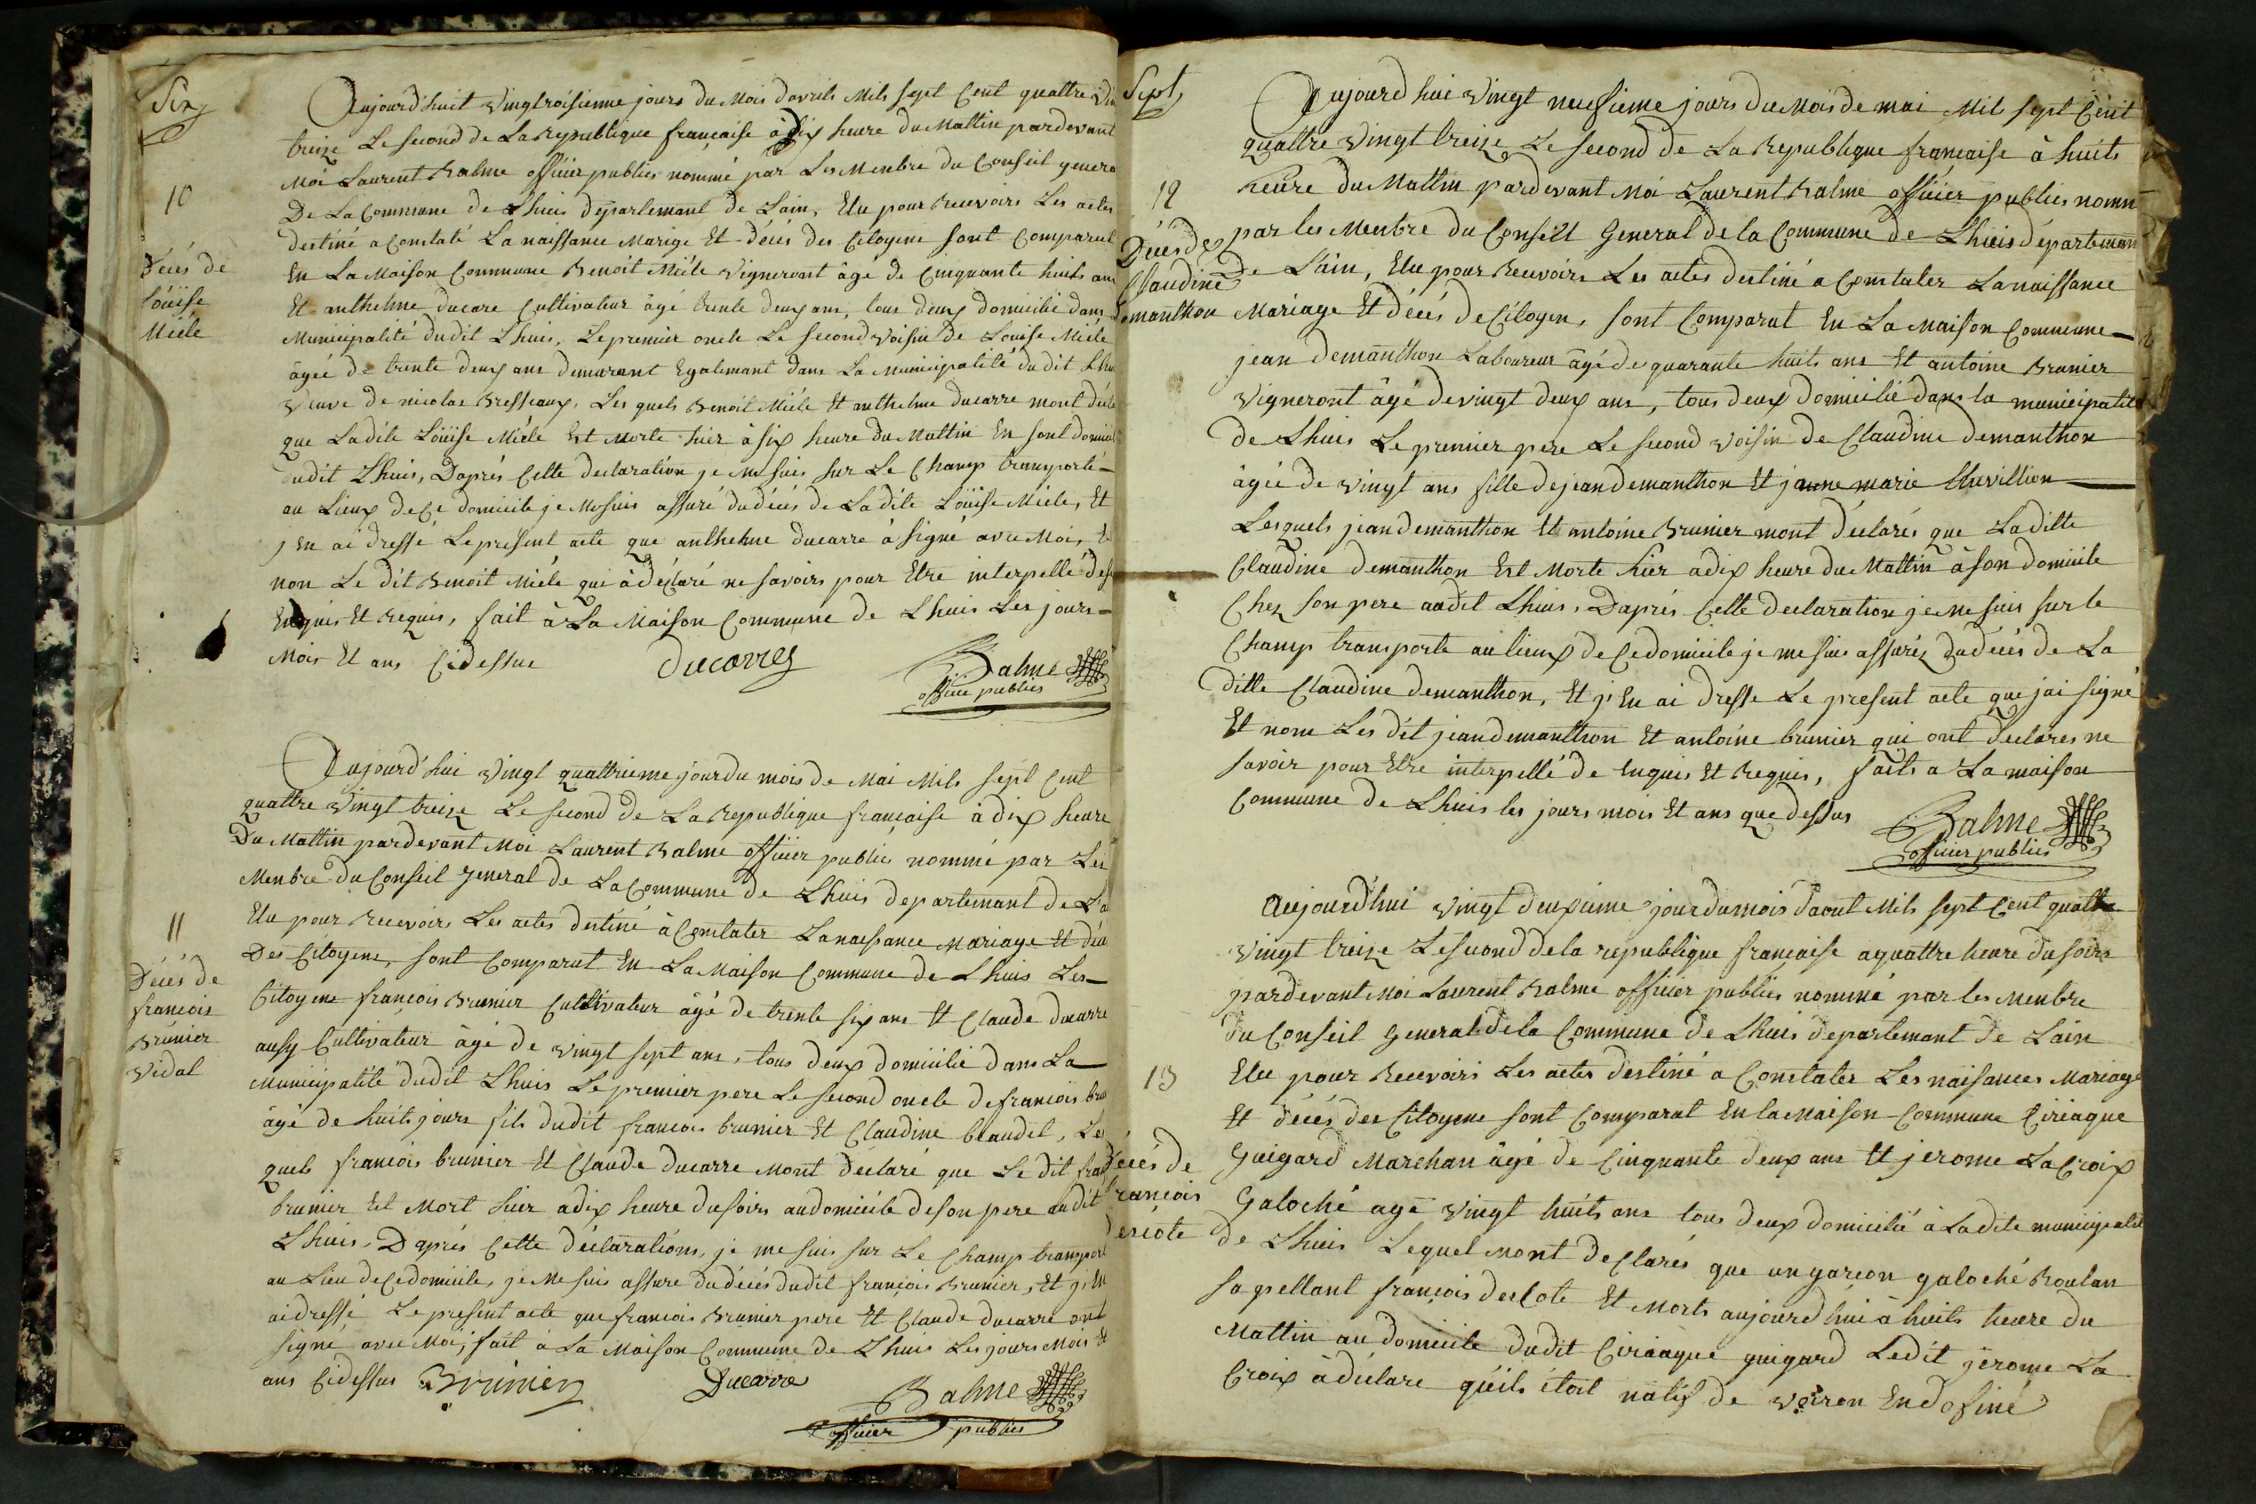 Six
Aujourd'huit vingtroisienme jours du Mois davrils Mils sept Cent quattre Vin
treize Le second de La Republique francaise à dix heure du Mattin pardevant
Moi Laurent Balme officier publics nommé par Les Menbre du Conseil genera
10
De La Commune de Lhuis département de Lain, Elu pour Recevoirs Les actes
destiné a Constaté La naissance Marige Et décés des Citoyens sont Comparut
Décés de
Loüise
Miéle
En La Maison Commune Benoit Miéle Vigneront âge de Cinquante huits ans
Et anthelme ducare Cultivateur âgé trente deux ans, tous deux domicilié dans
Municipalité dudit Lhuis, Le premier oncle Le second voisin de Louise Miéle
âgée de trente deux ans demurant Egalemant dans La Municipalité du dit Lhu
Veuve de nicolas Bresseaux, Les quels Benoit Miéle Et anthelme ducarre mont décla
que Ladite Loüise Miéle Est Morte hier à six heure du Mattin En sont domicil
dudit Lhuis, Daprés Cette declaration je me suis sur Le Champ transporté
au Lieux de Ce domicile je Me suis assuré du décés de Ladite Loüise Miéle, Et
jEn ai dressé Le present acte que anthelme ducarre à signé avec Moi, Et
non Le dit Benoit Miéle qui à déclaré ne savoirs pour Etre interpellé des
Enquis Et Requis, fait à La Maison Commune de Lhuis Les jours
Mois Et ans Cidessus
Ducarre
Balme
officier publics
Aujourd'hui vingt quattrieme jour du mois de Mai Mils sept Cent
quattre vingt treize Le second de La Republique francaise à dix heure
Du Mattin pardevant Moi Laurent Balme officier publics nommé par Les
Menbre du Conseil general de La Commune de Lhuis departemant de La
Elu pour Recevoirs Les actes destiné à Constater La naissance Mariage Et déc
11
Des Citoyens, sont Comparut En La Maison Commune de Lhuis Les
Décés de
francois
Brunier
Vidal
Citoyens francois Brunier Cultivateur âgé de trente six ans Et Claude ducarre
ausy Cultivateur âgé de vingt sept ans, tous deux domicilié dans La
Municipalité dudit Lhuis Le premier pere Le second oncle de francois bru
âgé de huits jours fils dudit francois brunier Et Claudine blaudet, Les
quels francois brunier Et Claude ducarre Mont déclaré que Le dit fran
brunier Est Mort hier à dix heure du soirs audomicile deson pere audit
Lhuis. Daprés Cette déclarations, je me suis sur Le Champ transport
au Lieu de Cedomicile, je Me suis assure dudécés dudit francois Brunier, Et jEn
ai dressé Le present acte que francois Brunier pere Et Claude ducarre ont
signé avec Moi, fait à La Maison Commune de Lhuis Les jours Mois Et
ans Cidessus
Brunier
Ducarre
Balme
officier publics
Sept
Aujourd hui vingt neufieme jours du Mois de mai Mil sept Cent
quattre vingt treize Le second de La Republique francaise à huits
12
heure du Mattin pardevant Moi Laurent Balme officier publics nomm
par les Menbre du Conseil General de la Commune de Lhuis départeman
Décés de
Claudine
Demanthon
de Lain, Elu pour Recevoirs Les actes destiné a Constater La naissance
Mariage Et décés de Citoyen, sont Comparut En La Maison Commune
jean demanthon Laboureur âgé de quarante huits ans Et antoine Brunier
Vigneront âgé devingt deux ans, tous deux domicilié dans la municipalité
de Lhuis Le premier pere Le second voisin de Claudine demanthon
âgée de vingt ans fille dejean demanthon Et janne marie Chevillion
Lesquels jean demanthon Et antoine Brunier mont déclarés que Laditte
Claudine demanthon Est Morte hier àdix heure du Mattin àson domicile
Chez son pere audit Lhuis, Daprés Cette declaration je me suis sur le
Champ transporte au lieux de Cedomicile je me suis assurés dudécés de La
ditte Claudine demanthon, Et jEn ai dresse Le present acte que jai signé
Et none Les dit jean demanthon Et antoine brunier qui ont declares ne
savoir pour Etre interpellé de Enquis Et Requis, faits a La maison
Commune de Lhuis les jours mois Et ans que dessus
Balme
officier publics
Aujourd'hui vingt deuxieme jour du mois daout Mils sept Cent quattre
vingt treize Lesecond dela republique francaise aquattre heure du soirs
pardevant Moi Laurent Balme officier publics nommé par les Menbre
du Conseil general de la Commune de Lhuis departemant de Lain
13
Elu pour Recevoirs Les actes destiné a Constater Les naisances Mariage
Et décés des Citoyens sont Comparut En la Maison Commune Ciriaque
Décés de
francois
Descote
Guigard Marchan âgé de Cinquante deux ans Et jerome La Croix
Galoché agé vingt huits ans tous deux domicilié à Ladite municipalité
de Lhuis Lequel mont declarés que un garcon galoché Roulan
sapellant francois descote Et Morts aujourdhui à huits heure du
Mattin au domicile dudit Ciriaque guigard Ledit jerome La
Croix à déclare quils étoit natif de Voiron En dofiné